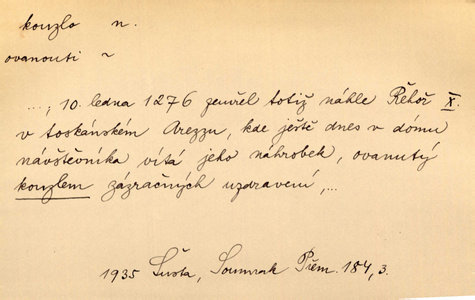 kouzlo n.
ovanouti ~
..., 10. ledna 1276 zemřel totiž náhle Řehoř X.
v toskánském Arezzu, kde ještě dnes v dómu
návštěvníka vítá jeho náhrobek, ovanutý
kouzlem zázračných uzdravení, ...
1935 Šusta, Soumrak Přem. 184, 3.